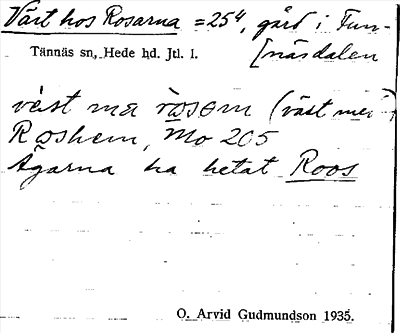 Väst hos Rosarna = 25⁴, gård i Fun-
[näsdalen
Tännäs sn, Hede hd. Jtl. l.
vėst ma rosom (väst med)
Roshem, Mo 205
Ägarna ha hetat Roos
O. Arvid Gudmundson 1935.